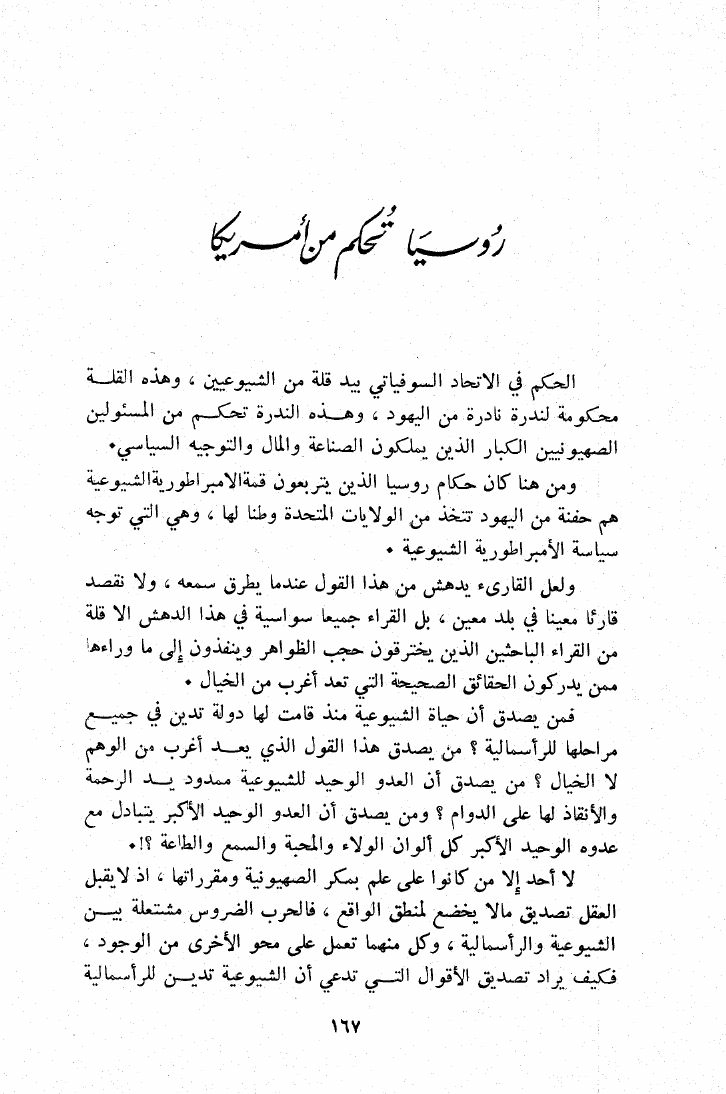 رُوسيَا تُحكم من أمريكا
الحكم في الاتحاد السوفياتي بيد قلة من الشيوعيين ، وهذه القلــة
محكومة لندرة نادرة من اليهود ، وهــذه الندرة تحكــم من المسئولين
الصهيونيين الكبار الذين يملكون الصناعة والمال والتوجيه السياسي•
ومن هنا كان حكام روسيا الذين يتربعون قمةالامبراطوريةالشيوعية
هم حفنة من اليهود تتخذ من الولايات المتحدة وطنا لها ، وهي التي توجه
سياسة الأمبراطورية الشيوعية •
ولعل القارىء يدهش من هذا القول عندما يطرق سمعه ، ولا نقصد
قارئا معينا في بلد معين ، بل القراء جميعا سواسية في هذا الدهش الا قلة
من القراء الباحثين الذين يخترقون حجب الظواهر وينفذون إلى ما وراءها
ممن يدركون الحقائق الصحيحة التي تعد أغرب من الخيال •
فمن يصدق أن حياة الشيوعية منذ قامت لها دولة تدين في جميــع
مراحلها للرأسمالية ؟ من يصدق هذا القول الذي يعــد أغرب من الوهم
لا الخيال ؟ من يصدق أن العدو الوحيد للشيوعية ممدود يــد الرحمة
والأنقاذ لها على الدوام ؟ ومن يصدق أن العدو الوحيد الأكبر يتبادل مع
عدوه الوحيد الأكبر كل ألوان الولاء والمحبة والسمع والطاعة ؟!•
لا أحد إلا من كانوا على علم بمكر الصهيونية ومقرراتها ، اذ لايقبل
العقل تصديق مالا يخضع لمنطق الواقع ، فالحرب الضروس مشتعلة بيــن
الشيوعية والرأسمالية ، وكل منهما تعمل على محو الأخرى من الوجود ،
فكيف يراد تصديق الأقوال التــي تدعي أن الشيوعية تديــن للرأسمالية
١٦٧